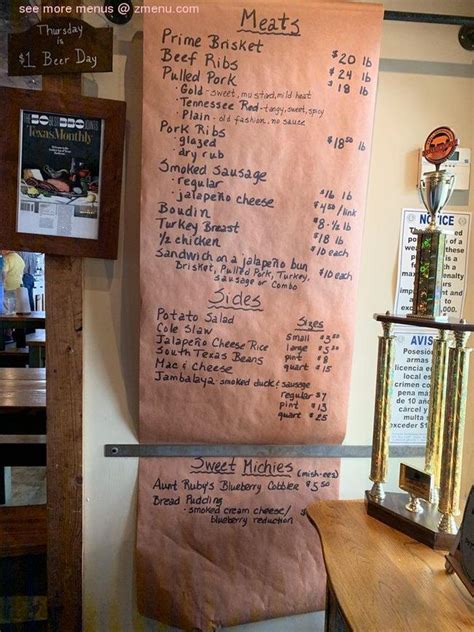 see more menus @ zmenu.com
Thursday
is
$1 Beer Day
THE 50 BEST BBQ JOINTS
TexasMonthly
Meats
Prime Brisket $20 lb
Beef Ribs $24 lb
Pulled Pork $18 lb
· Gold - sweet, mustard, mild heat
· Tennessee Red - tangy, sweet, spicy
· Plain - old fashion, no sauce
Pork Ribs $18.50 lb
· glazed
· dry rub
Smoked Sausage
· regular $16 lb
· jalapeño cheese $4.50/link
Boudin $8 - ½ lb
Turkey Breast $18 lb
½ chicken $10 each
Sandwich on a jalapeño bun $10 each
Brisket, Pulled Pork, Turkey,
sausage or Combo
Sides
Potato Salad
Cole Slaw
Jalapeño Cheese Rice
South Texas Beans
Mac & Cheese
Sizes
small $3.50
large $5.50
pint $8
quart $15
Jambalaya - smoked duck & sausage
regular $7
pint $13
quart $25
Sweet Michies (mish-ees)
Aunt Ruby's Blueberry Cobbler $5.50
Bread Pudding
· smoked cream cheese/
blueberry reduction $
NOTICE
AVIS
Posesió
licencia
local es
crimen co
penas max
de 10 año
cárcel y
multa
exceder $1